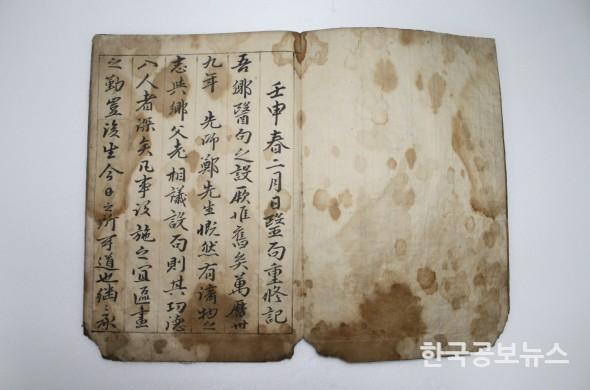 壬申春二月日醫局重修記
吾鄉醫局之設厥惟舊矣萬曆卅
九年 先師鄭先生慨然有濟物之
志與鄉父老相議設局則其功德
入人者深矣凡事設施之宜區畫
之勤豈後生今日之所可道也緬
한국공보뉴스